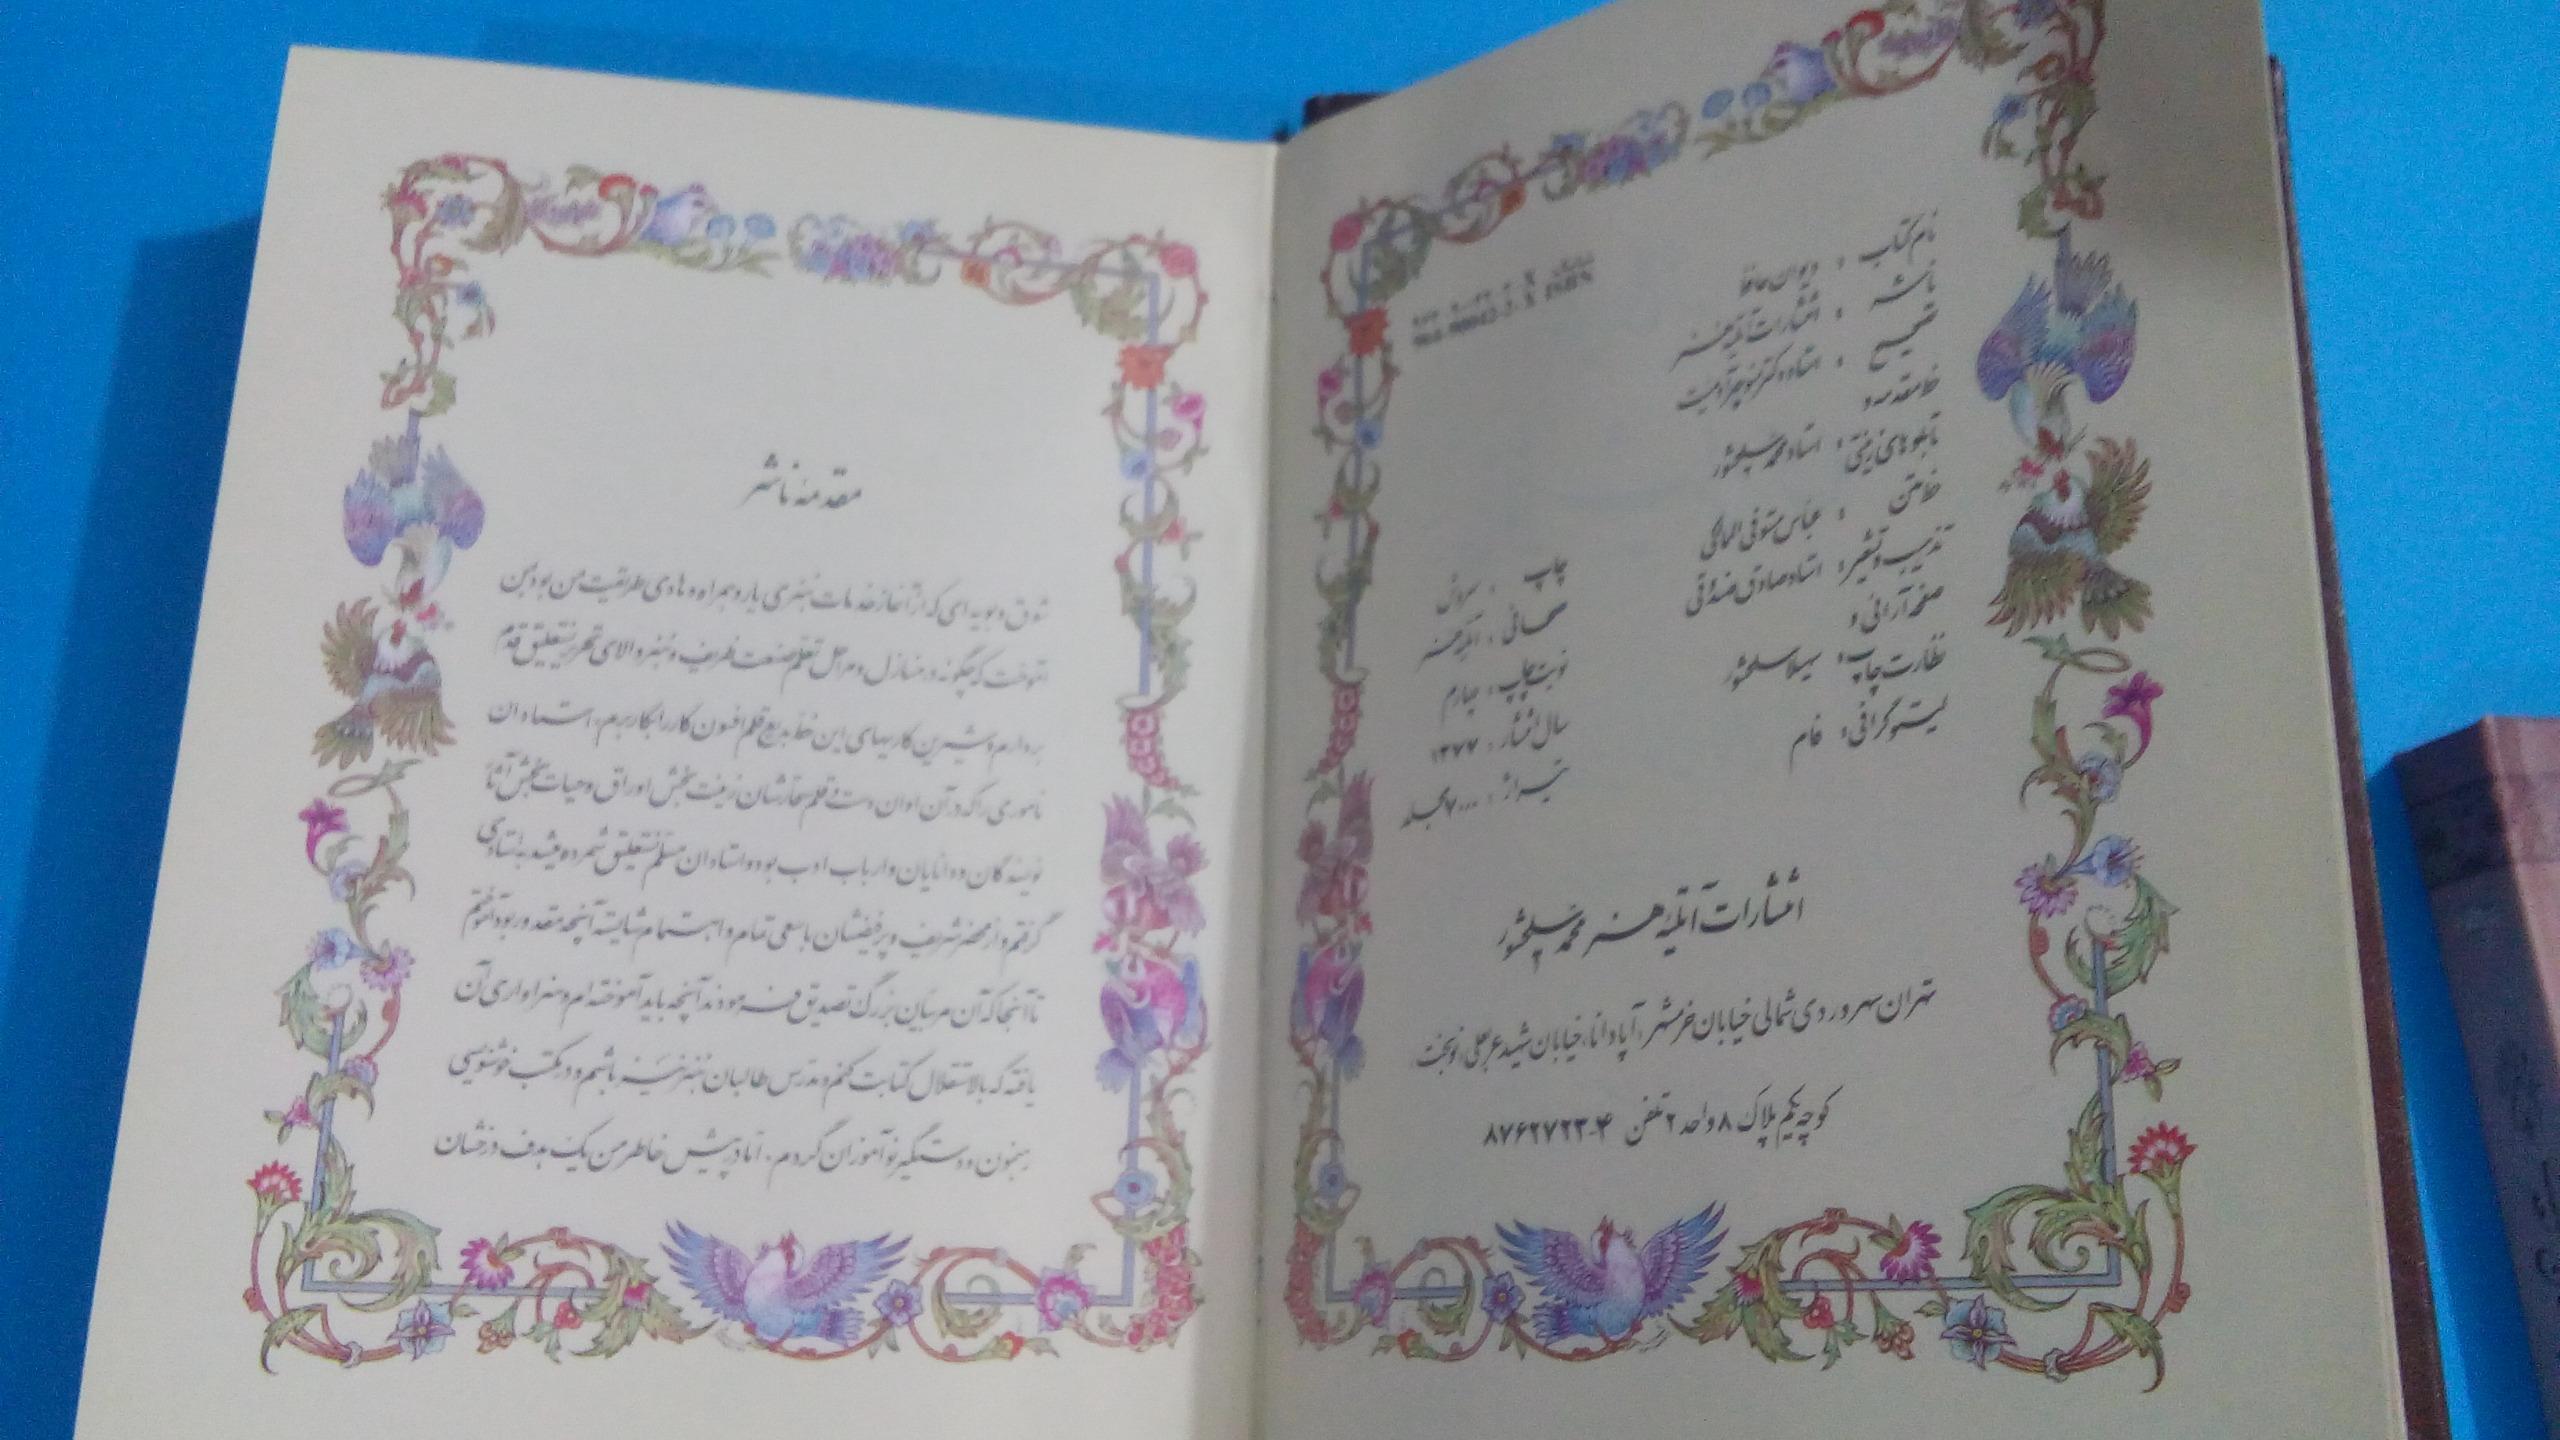 نام کتاب : دیوان حافظ
ناشر : انتشارات آتلیه هنر
تصحیح : استاد دکتر منوچهر آدمیت
خط مقدمه و
تابلوهای زینتی : استاد محمد سلحشور
خط متن : عباس مستوفی الممالکی
تذهیب و تشعیر : استاد صادق صندوقی
صفحه آرائی و
نظارت چاپ : سهیلا سلحشور
لیتوگرافی : فام
شابک X
ISBN
چاپ : سروش
صحافی : آتلیه هنر
نوبت چاپ : چهارم
سال انتشار : ۱۳۷۷
تیراژ : ۷۰۰۰ جلد
انتشارات آتلیه هنر محمد سلحشور
تهران سهروردی شمالی خیابان خرمشهر، آپادانا، خیابان شهید عربعلی، نوبخت
کوچه یکم پلاک ۸ واحد ۲ تلفن
مقدمه ناشر
شوق و پویه ای که از آغاز خدمات هنری یار و همراه و هادی طریقت من بود بمن
آموخت که چگونه در منازل و مراحل تعلم صنعت ظریف و هنر والای تحریر نستعلیق قدم
بردارم و شیرین کاریهای این خط بدیع قلم افسون کار را بکار برم، استادان
ناموری را که در آن اوان دست و قلم سحارشان زینت بخش اوراق و حیات بخش آثار
نویسندگان و دانایان و ارباب ادب بود و استادان مسلم نستعلیق شمرده میشدند باستادی
گرفتم و از محضر شریف و پر فیضشان با سعی تمام و اهتمام شایسته آنچه مقدور بود آموختم
تا آنجا که آن مربیان بزرگ تصدیق فرمودند آنچه باید آموخته ام و سزاواری آن
یافته که بالاستقلال کتابت کنم و مدرس طالبان هنر نیز باشم و در مکتب خوشنویسی
رهنمون و دستگیر نوآموزان گردم، اما در پیش خاطر من یک هدف درخشان